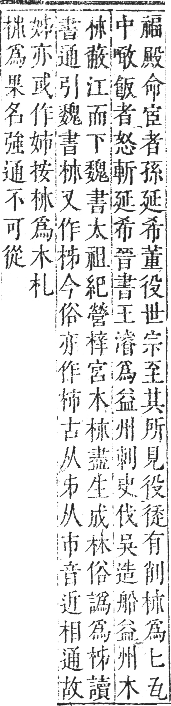 福殿命宦者孫延希董役世宗至其所見役徒有削柹爲匕瓦
中噉飯者怒斬延希晉書王濬爲益州刺史伐吳造船益州木
柹蔽江而下魏書太祖紀營梓宮木柹盡生成林俗譌爲柹讀
書通引魏書柹又作柹今俗亦作柿古从𠂔从市音近相通故
姊亦或作姉按柹爲木札
柹爲果名強通不可從